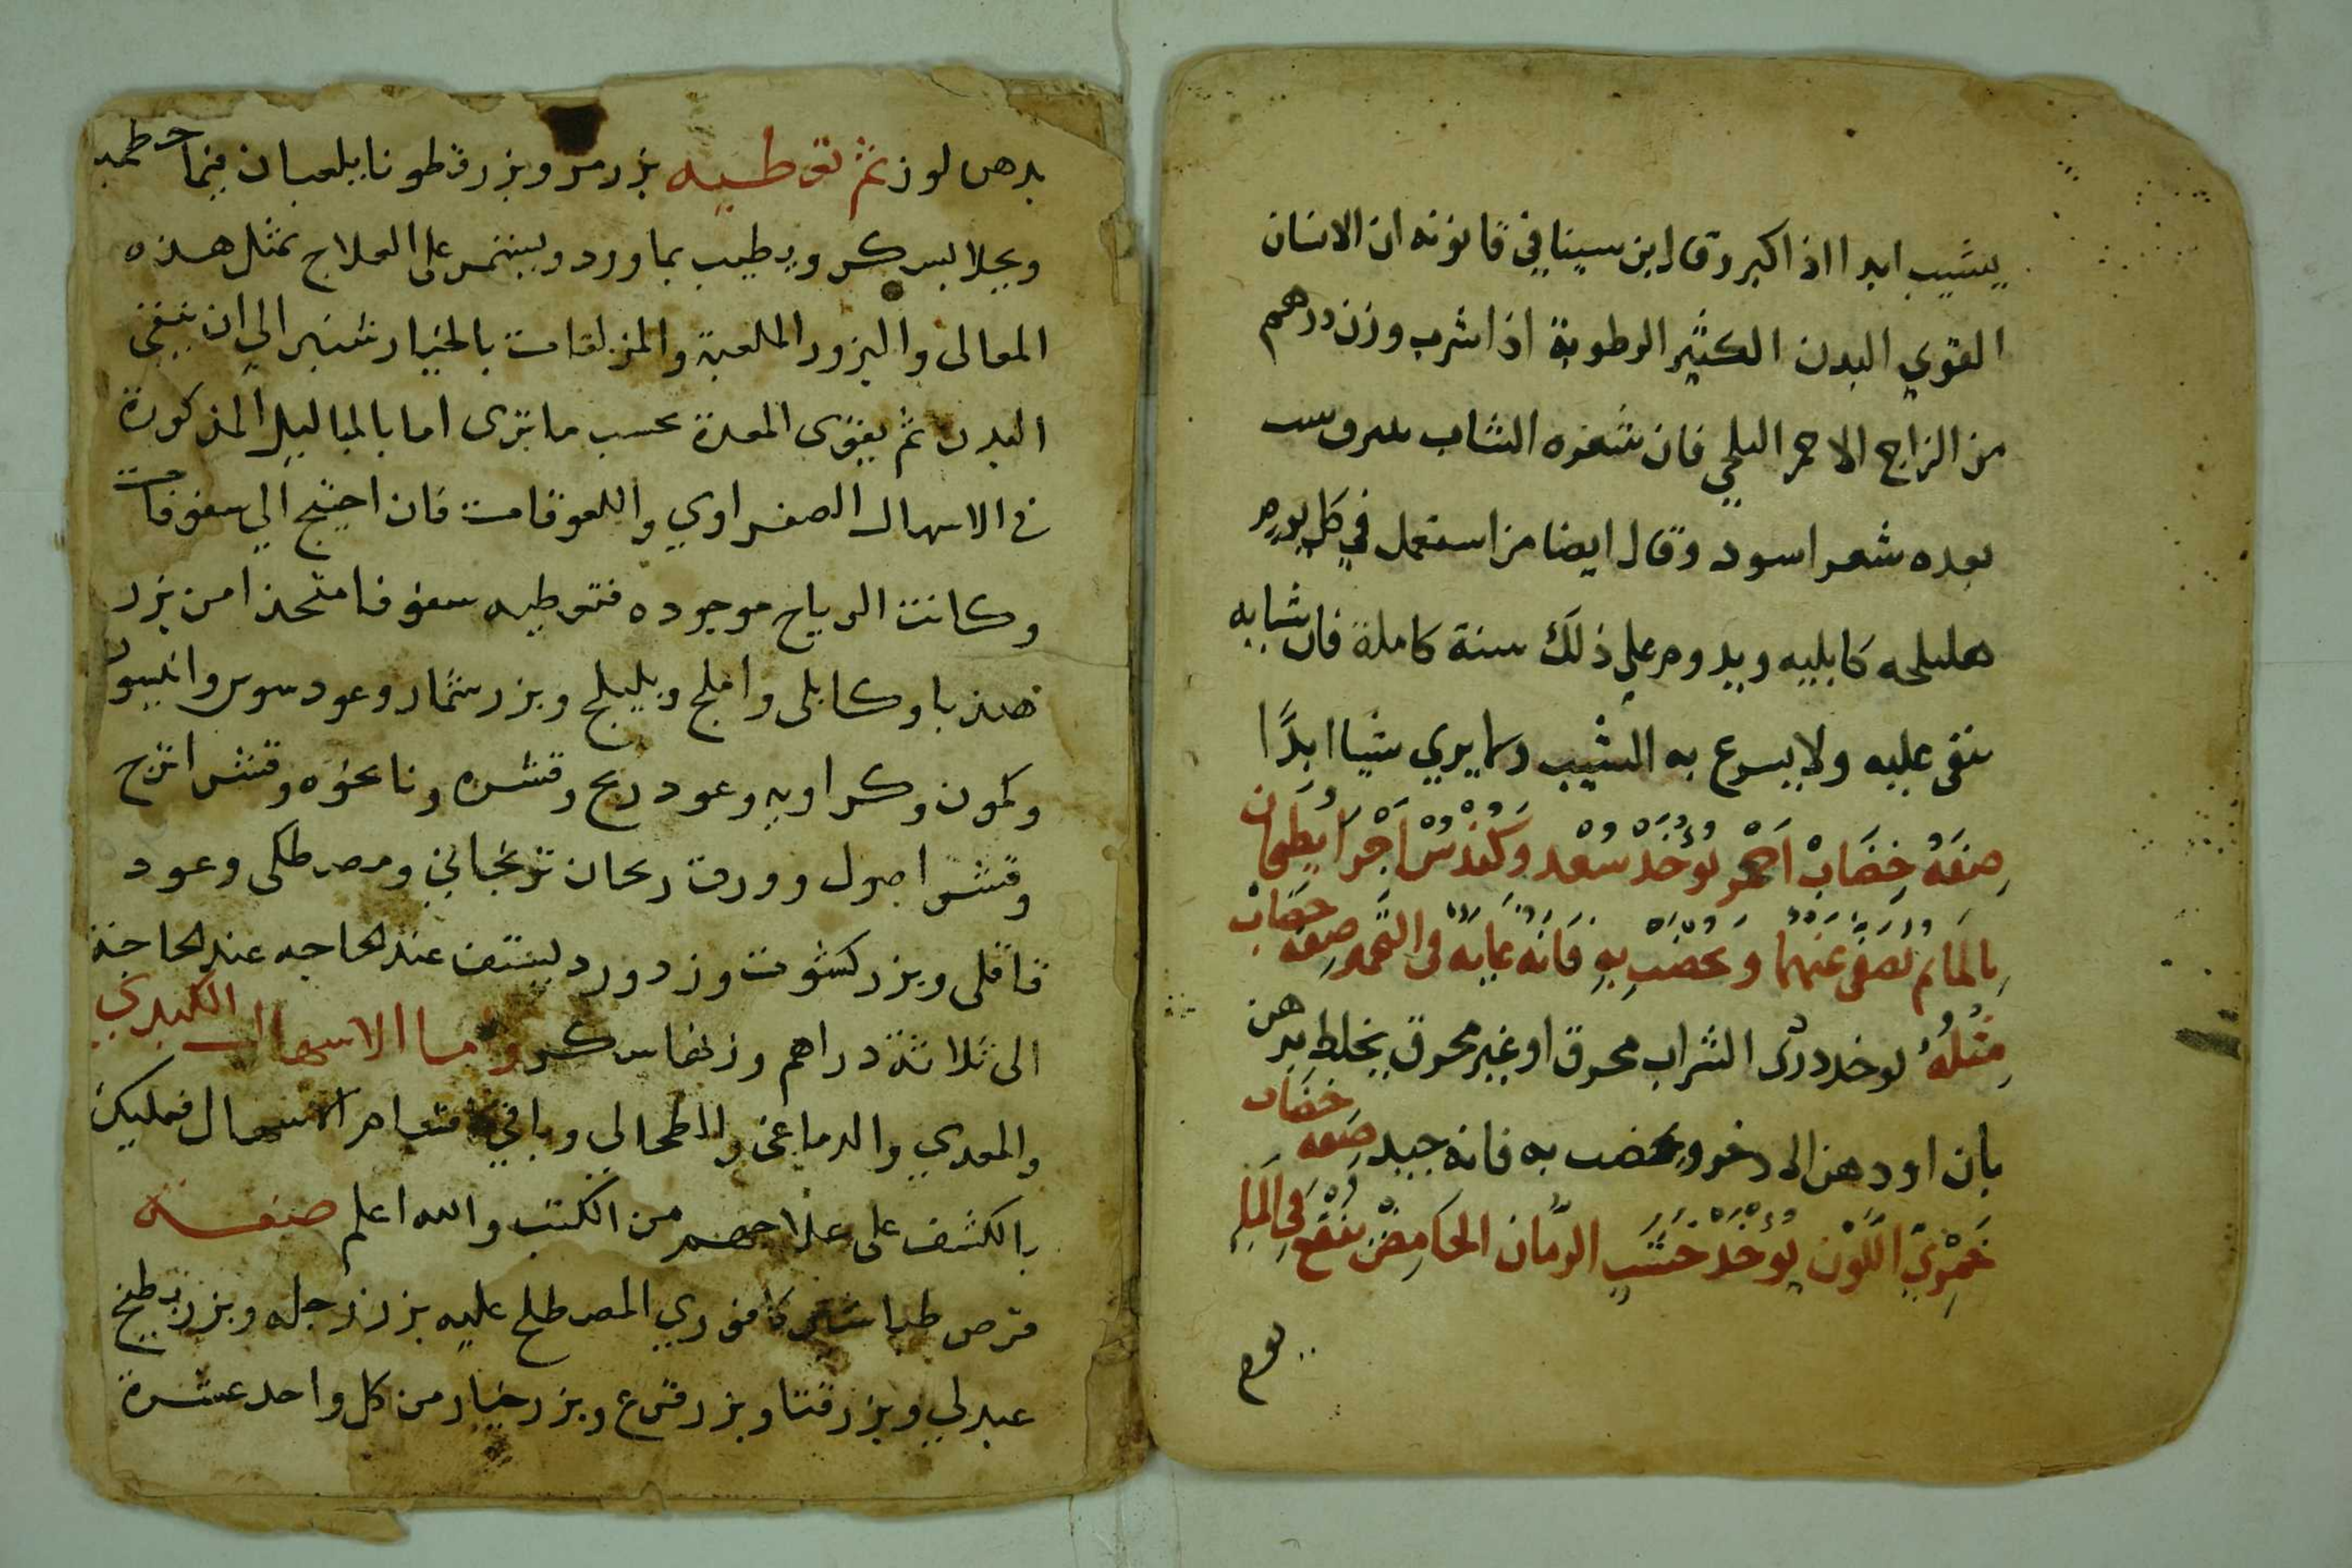 يشيب ابدا اذا اكبر وقال ابن سينا في قانونه ان الانسان
القوي البدن الكثير الرطوبة اذا شرب وزن درهم
من الزاج الاحمر البلخي فان شعره الشاب
بعده شعر اسود وقال ايضا من استعمل في كل يوم
هليلجه كابليه ويدوم على ذلك سنة كاملة فان شبابه
يبقى عليه ولا يسرع به الشيب وما يري شيا ابدًا
صِفَةُ خِضَابْ اَحْمَر يُوْخَذ سُعْد وَكُنْدُسْ اَجْزَا يُطْبَخَان
بِالمَا ثم يُصَفى عَنهُما وَيخضَب بِهِ فَانهُ غايَه في الحُمره صِفة خضَاب
مِثلهُ يوخذ دردى الشراب محروق او غير محروق يخلط بدهن
بان او دهن الادخر ويخضب به فانه جيد صِفه خِضَاب
خَمْرِيّ اللَّوْن يُوْخَذ خَشَب الرمَّان الحَامِضْ يُنْقَع فِي المَا
يوم
بدهن لوز ثم تعطيه بزر مر وبزر قطونا يلعبان في ما خطميه
ويحلا بسكر ويطيب بماورد ويستمر على العلاج بمثل هذه
المعالى والبزور الملعبة والمزلقات بالخيار شنبر الي ان ينقى
البدن ثم يقوى المعدة بحسب ما ترى اما بالهباليل المذكورة
في الاسهال الصفراوي واللعوقات فان احتيج الي سفوفات
وكانت الرياح موجوده فتعطيه سفوفا متخذا من بزر
هندبا وكابلى واملج وبليلج وبزر شمار وعود سوس وانيسون
وكمون وكراويه وعود ريح وقشره ونانخوه وقشر اترج
وقشر اصول وورق ريحان ترنجاني ومصطكى وعود
قاقلى وبزر كشوت وزر ورد يستف عند الحاجه عند الحاجة
الى ثلاثة دراهم وزنها سكر واما الاسهال الكبدي
والمعدي والدماغى والطحالي وباقي اقسام الاسهال فعليك
بالكشف على علاجهم من الكتب والله اعلم صفة
قرص طباشير كافوري المصطلح عليه بزر رجله وبزر بطيخ
عبدلي وبزر قثا وبزر قرع وبزر خيار من كل واحد عشرة